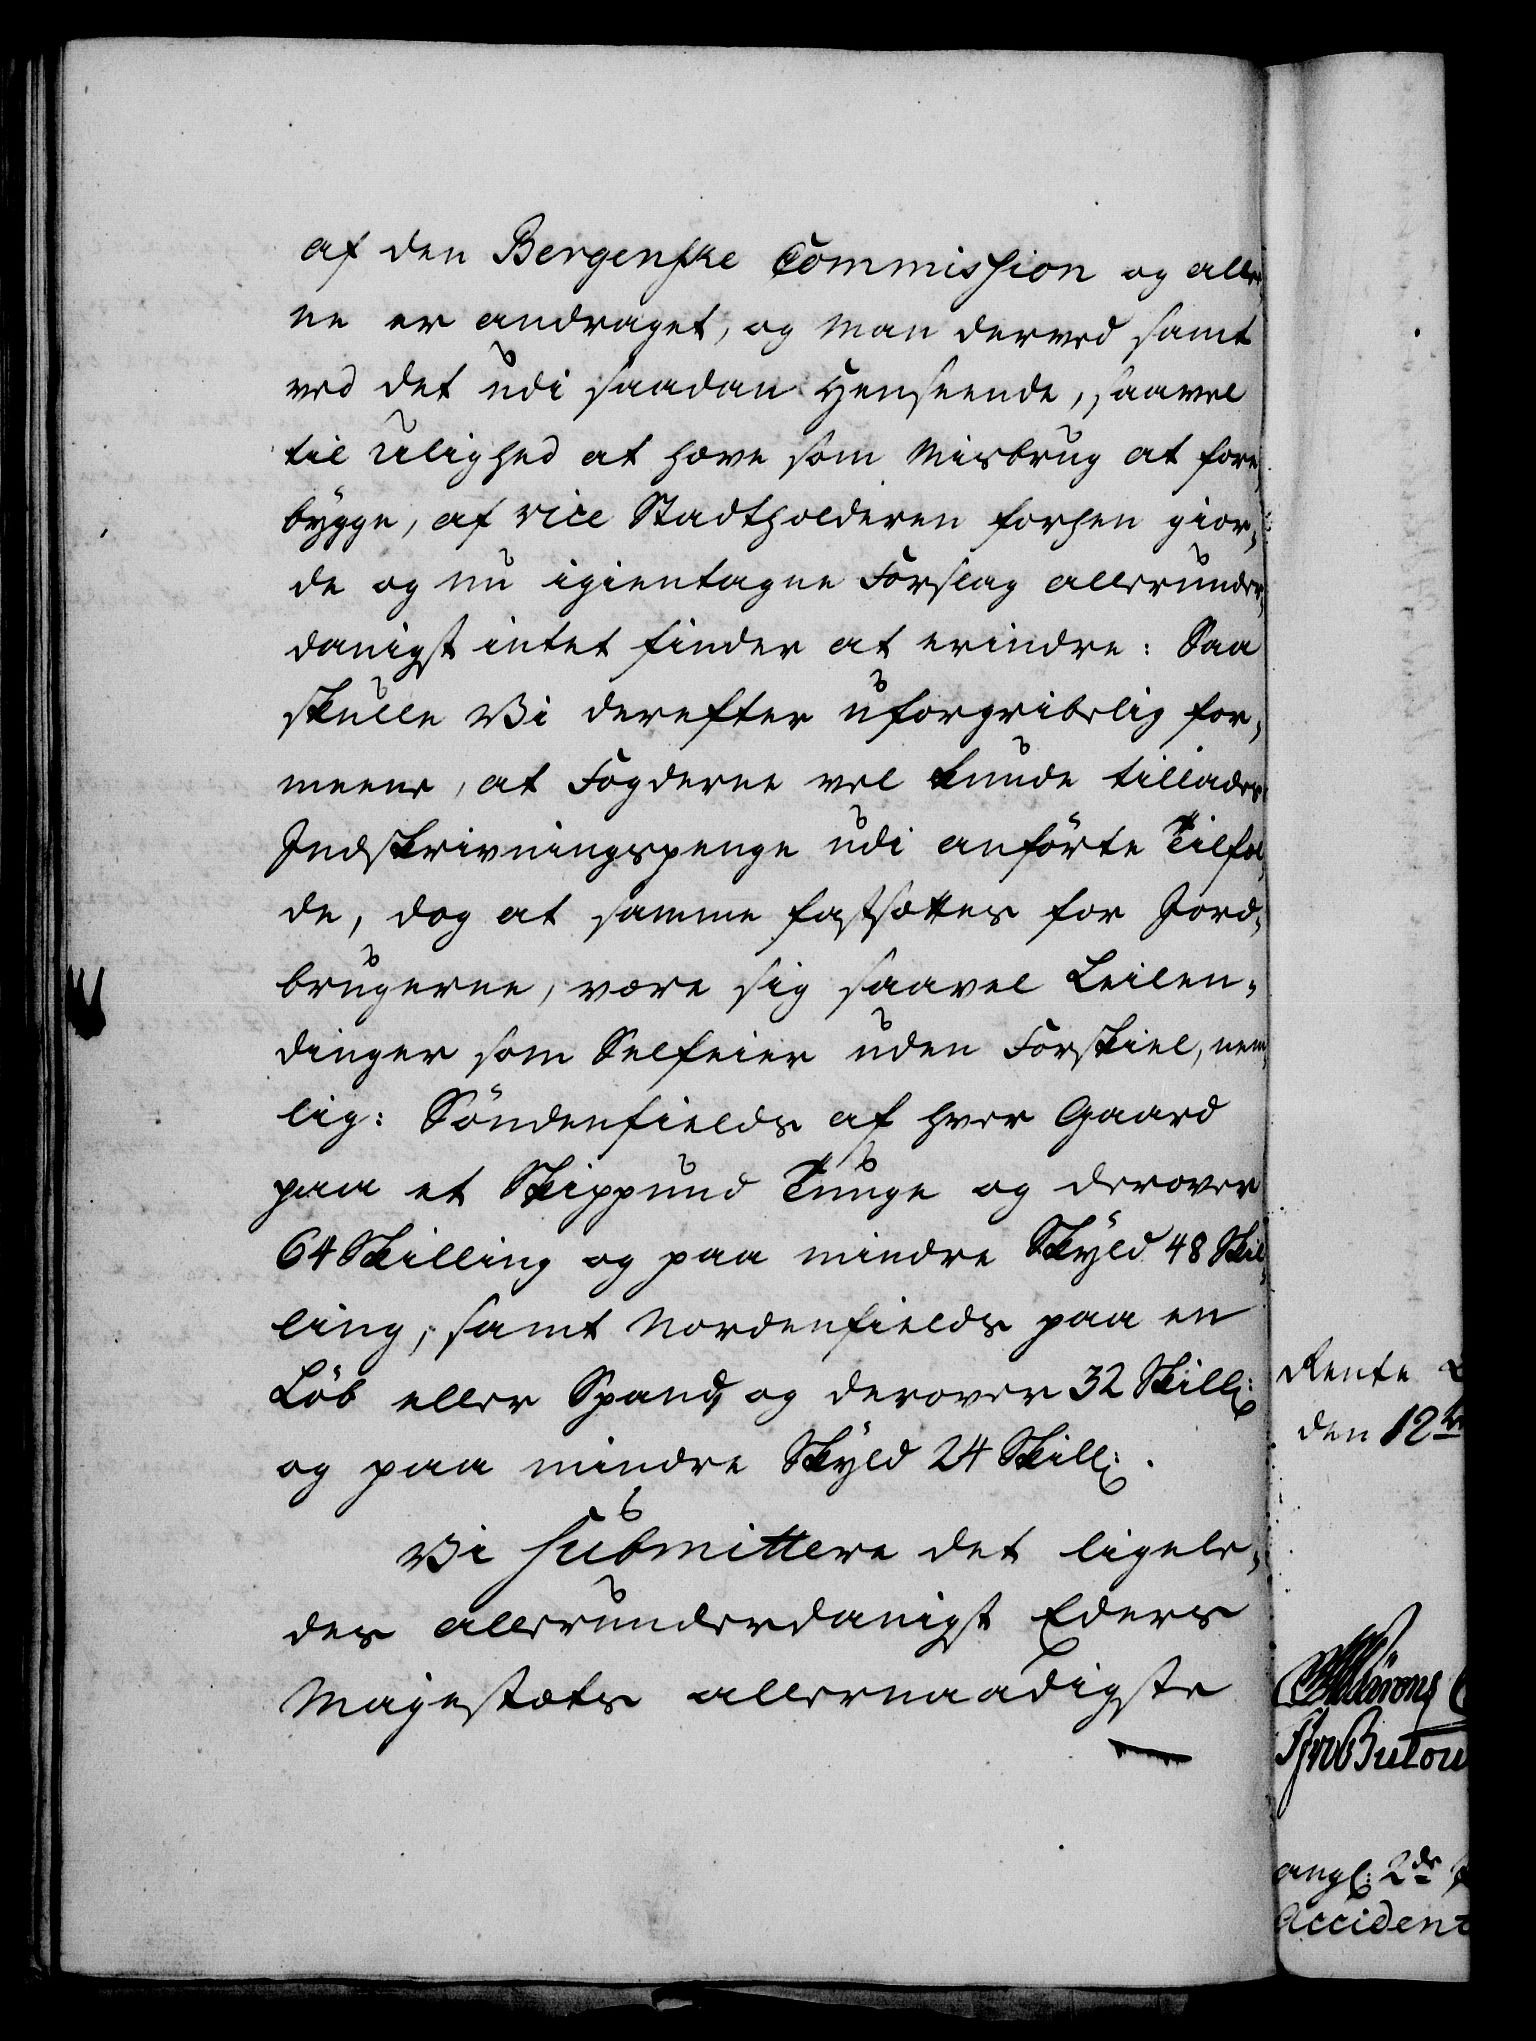 af den Bergenske Commission og alle,
ne er andraget, og man derved samt
ved det udi saadan Henseende, saavel
til Ulighed at hæve som Misbrug at fore,
bygge, af Vice Stadtholderen forhen gior,
de og nu igientagne Forslag allerunder,
danigst intet finder at erindre: Saa
skulle Vi derefter uforgribelig for,
meene, at Fogderne vel kunde tillades
Indskrivningspenge udi anførte Tilfæl,
de, dog at samme fastsættes for Jord,
brugerne, være sig saavel Leilen,
dinger som Selfeier uden Forskiel, nem,
lig: Søndenfields af hver Gaard
paa et Skippund Tunge og derover
64 Skilling og paa mindre Skyld 48 Skil,
ling, samt Nordenfields paa en
Løb eller Spand og derover 32 Skill:
og paa mindre Skyld 24 Skill:.
Vi submittere det ligele,
des allerunderdanigst Eders
Majestæts allernaadigste
Rente
den 12te
ang: 2de
Accident